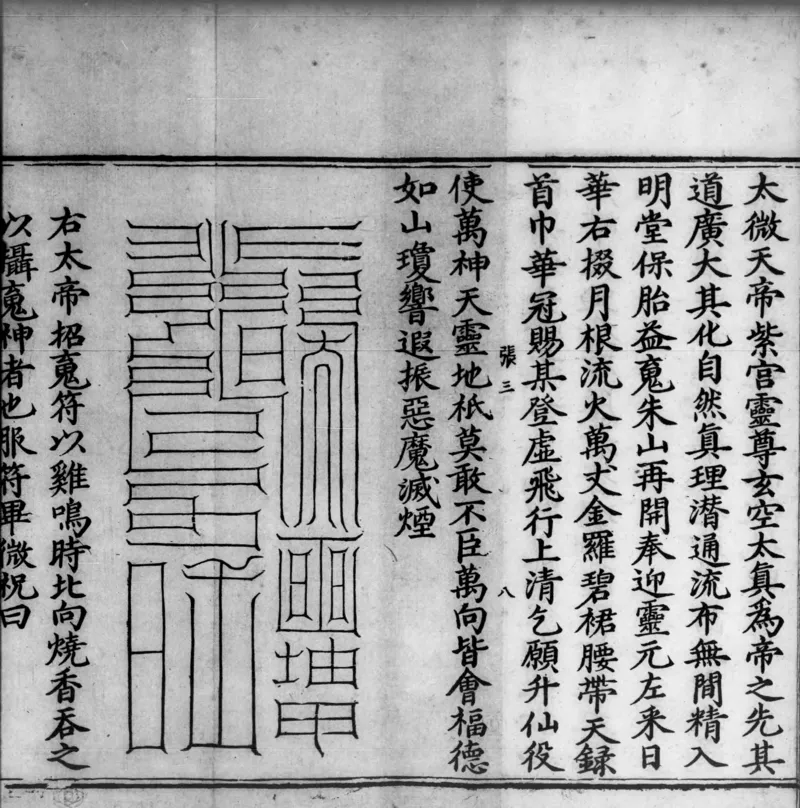 太微天帝紫宫靈尊玄空太眞爲帝之先其
道廣大其化自然眞理潜通流布無間精入
明堂保胎益䰟朱山再開奉迎靈元左采日
華右掇月根流火萬丈金羅碧裙腰帶天録
首巾華冠賜某登虚飛行上清乞願升仙役
張三 八
使萬神天靈地祇莫敢不臣萬向皆會福德
如山瓊響遐振惡魔滅煙
右太帝招䰟符以雞鳴時北向燒香吞之
以攝䰟神者也服符畢微祝曰